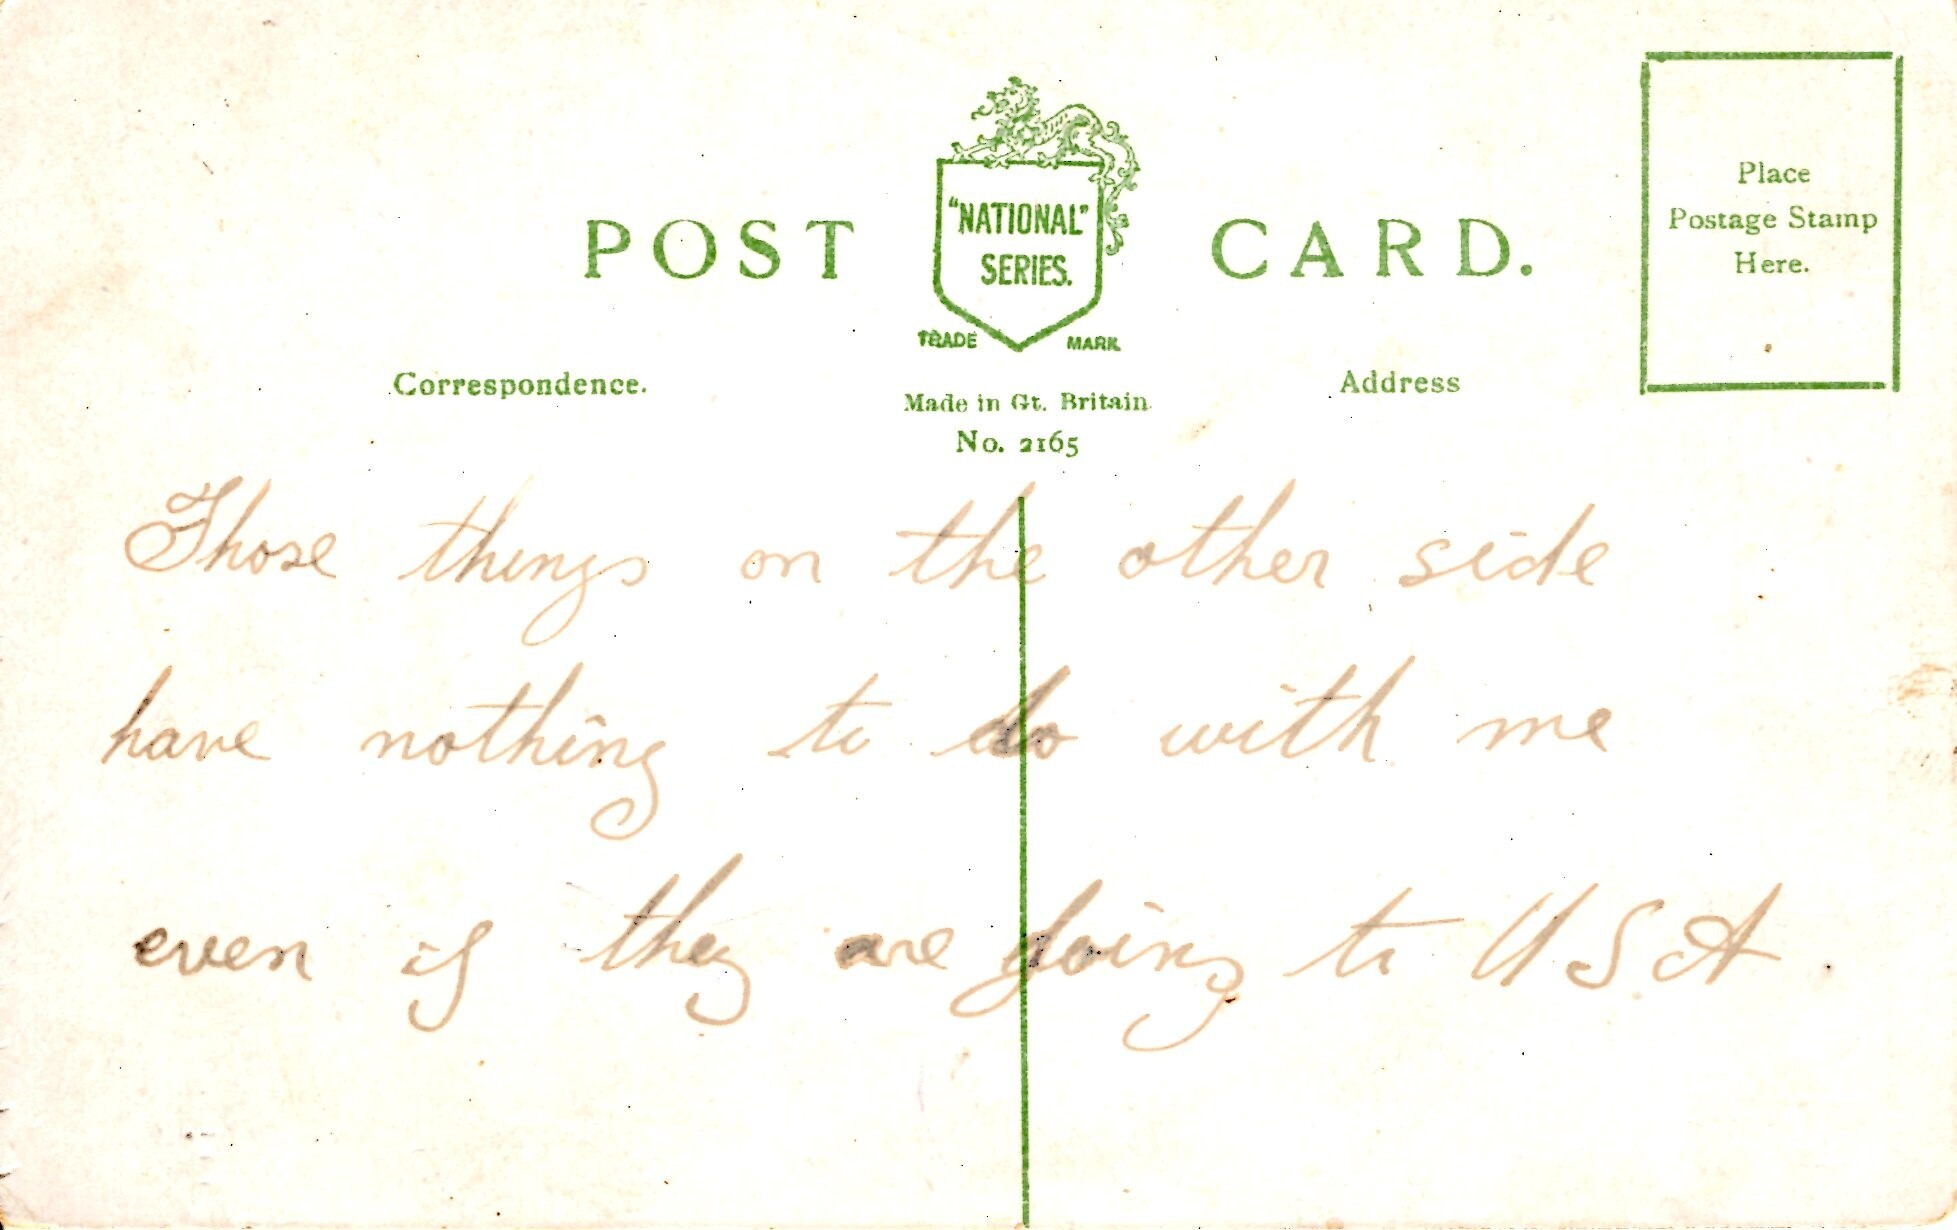 POST CARD.
"NATIONAL"
SERIES.
TRADE MARK
Place
Postage Stamp
Here.
Correspondence.
Made in Gt. Britain
No. 2165
Address
Those things on the other side
have nothing to do with me
even if they are going to USA.